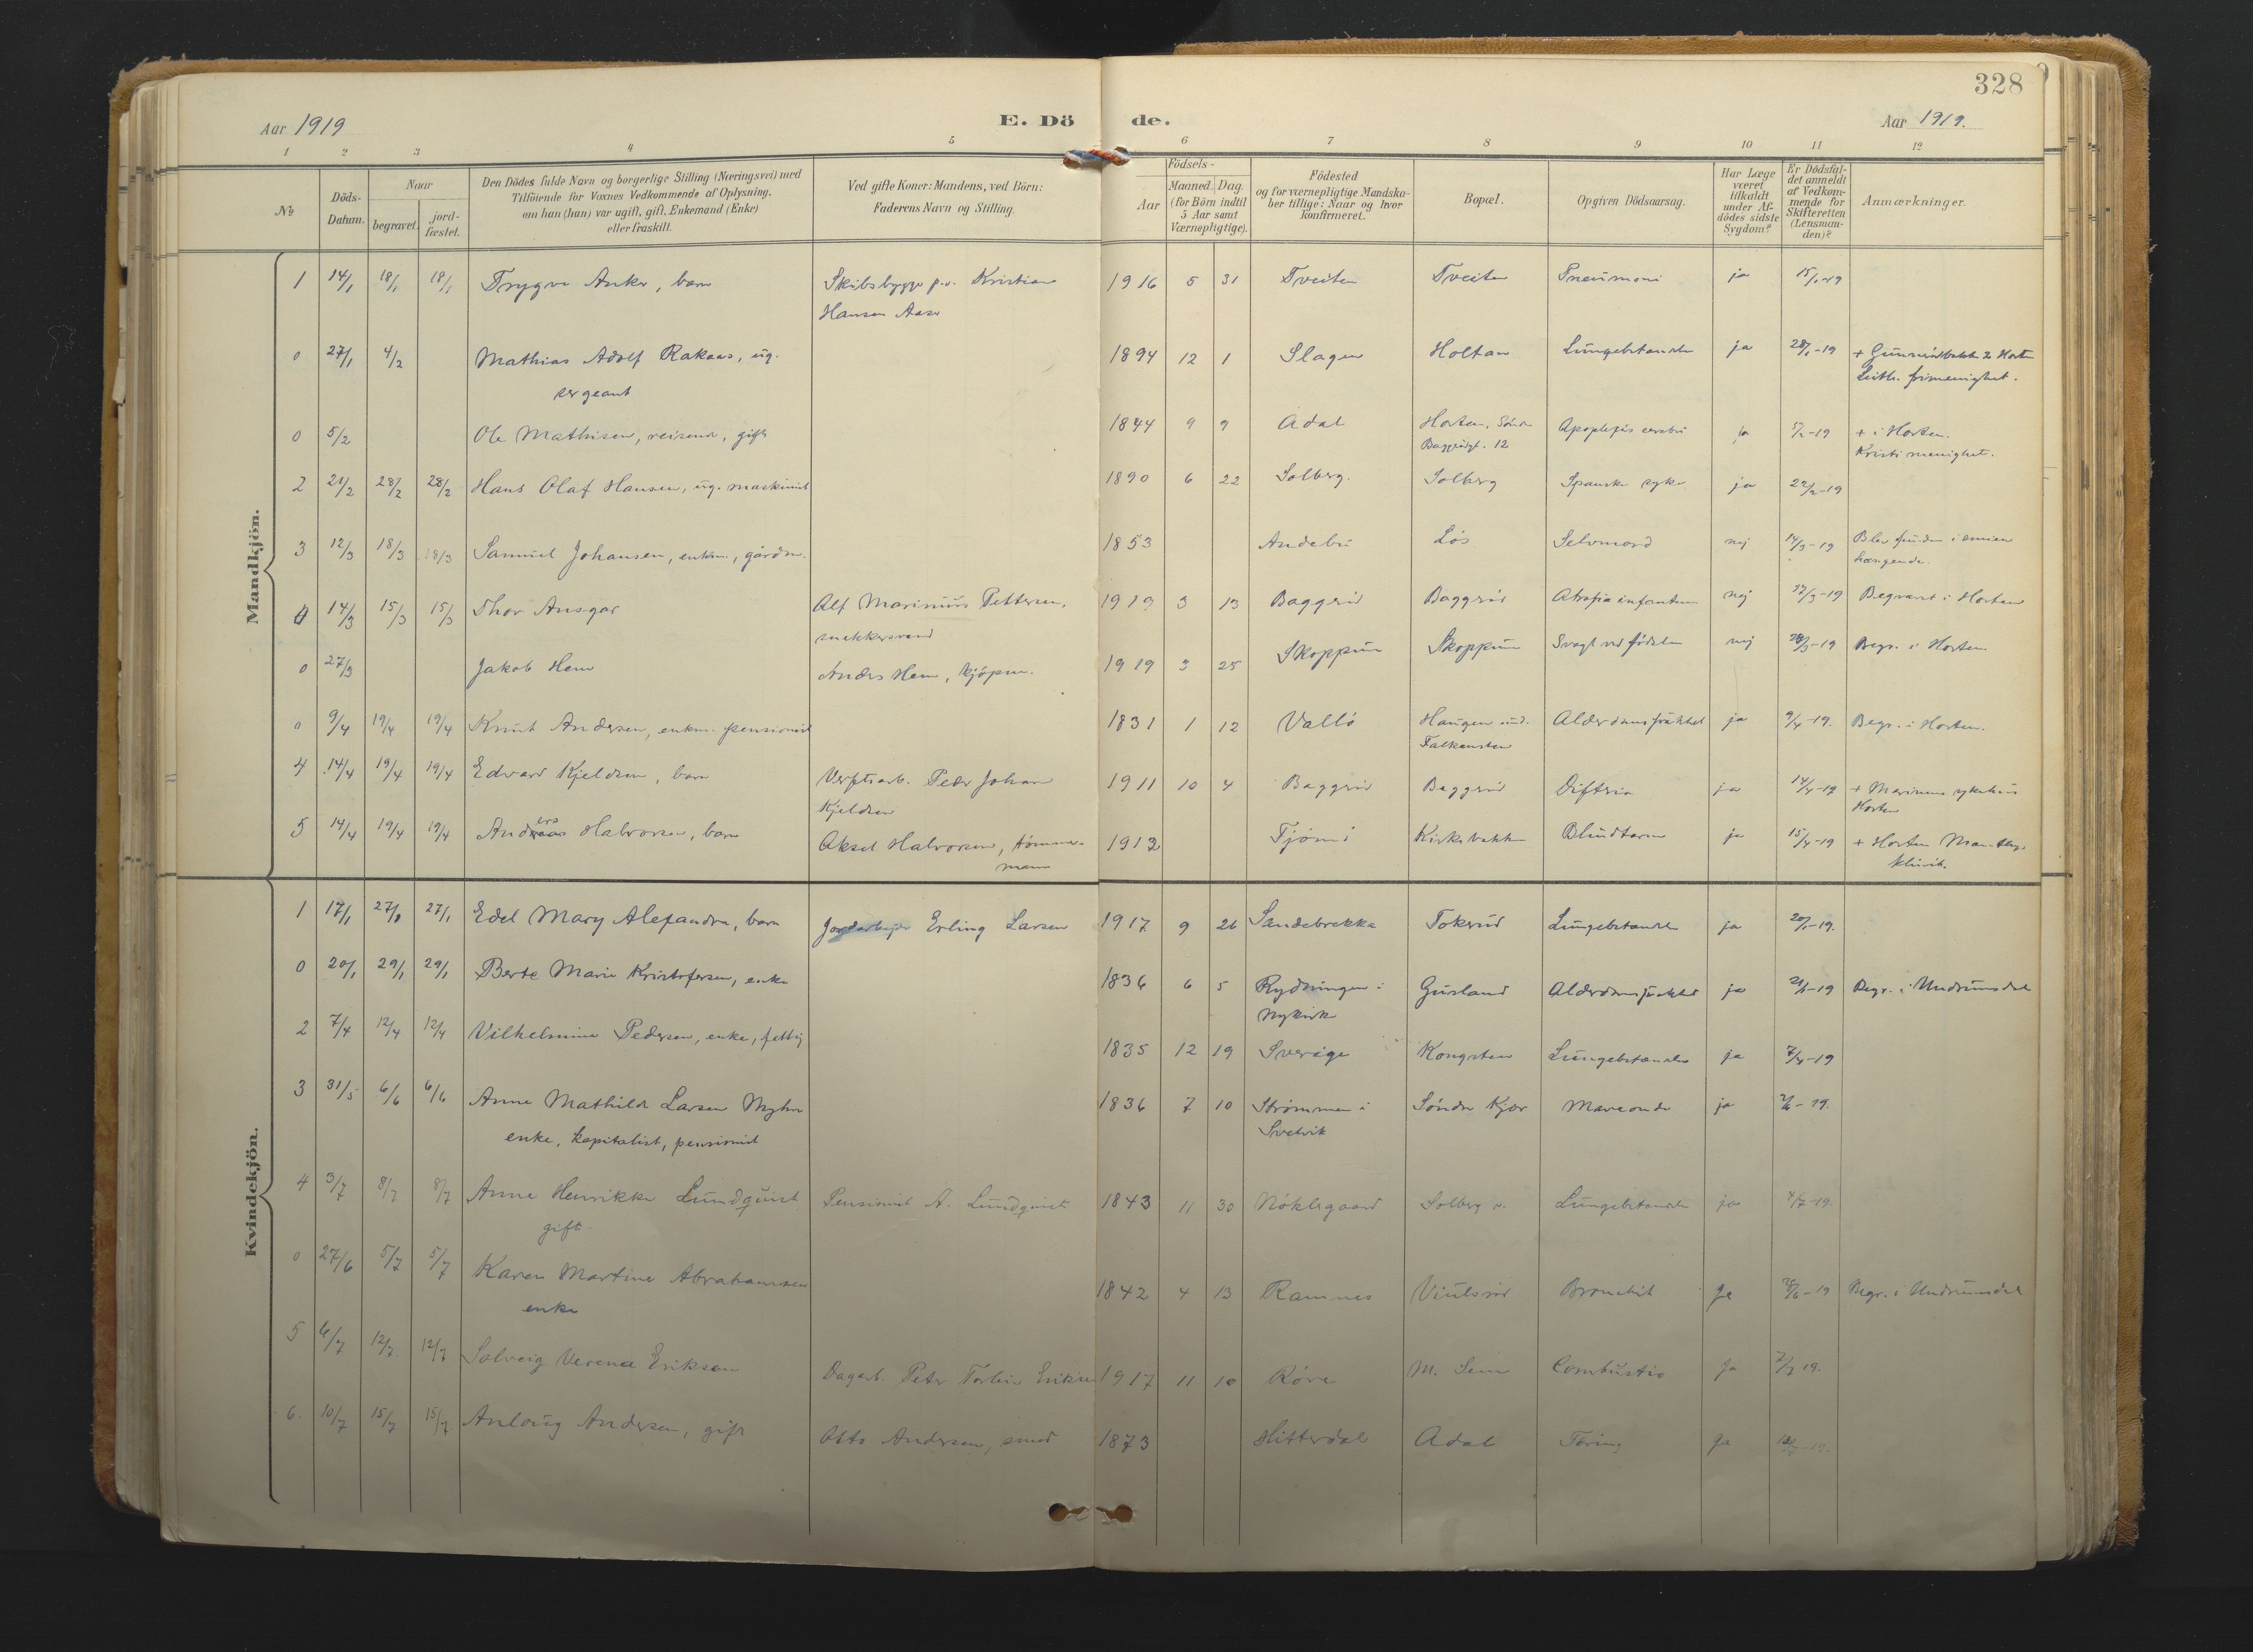 328
Aar 1919
E. Dö de.
Aar 1919.
1 2 3 4 5 6 7 8 9 10 11 12
No
Döds-Datum.
Naar
begravet.
jord-fæstet.
Den Dödes fulde Navn og borgerlige Stilling (Næringsvei) med
Tilföiende for Voxnes Vedkommende af Oplysning,
om han (hun) var ugift, gift, Enkemand (Enke)
eller fraskilt.
Ved gifte Koner: Mandens, ved Börn:
Faderens Navn og Stilling.
Aar
Födsels-
Maaned. Dag.
(for Börn indtil
5 Aar samt
Værnepligtige).
Födested
og for værnepligtige Mandska-
ber tillige: Naar og hvor
konfirmeret.
Bopæl.
Opgiven Dödsaarsag.
Har Læge
været
tilkaldt
under Af-
dödes sidste
Sygdom?
Er Dödsfal-
det anmeldt
af Vedkom-
mende for
Skifteretten
(Lensman-
den)?
Anmærkninger.
Mandkjön.
1 14/1 18/1 18/1 Trygve Anker, barn Skibsbygger Kristian 1916 5 31 Tveiten Tveiten Pneumoni ja 15/1-19
Hansen Aase
0 27/1 4/2 Mathias Adolf Rakaas, ug. 1894 12 1 Slagen Holtan Lungebetændelse ja 28/1-19
sergeant
Luth. frimenighet.
0 5/2 Ole Mathisen, reisende, gift 1844 9 9 Adal Horten, Söndre Apoplexia cerebri ja 5/2-19 + i Horten.
12 Kristi menighet.
2 21/2 28/2 28/2 Hans Olaf Hansen, ug. maskinist 1890 6 22 Solberg. Solberg Spanske syke ja 22/2-19
3 12/3 18/3 18/3 Samuel Johansen, enkm., gårdm. 1853 Andebu Lös Selvmord nej 14/3-19 Blev funden
hængende.
0 14/3 15/3 15/3 Thor Ansgar Alf Marinius Pettersen, 1919 3 13 Baggerud Baggerud Atrofia infantum nej 17/3-19 Begravet i Horten
snekkersvend
0 27/3 Jakob Hem Anders Hem, kjöpm. 1919 3 25 Skoppum Skoppum Svagt ved födslen nej 28/3-19 Begr. i Horten
0 9/4 19/4 19/4 Knut Andersen, enkm. pensionist 1831 1 12 Vallö Haugen Alderdomsfrakket ja 9/4-19. Begr. i Horten.
Falkensten
4 14/4 19/4 19/4 Edvard Kjeldsen, barn Verftsarb. Peder Johan 1911 10 4 Baggerud Baggerud Difteria ja 14/4-19 + Marinens sykehus
Kjeldsen Horten
5 14/4 19/4 19/4 Anders Halvorsen, barn Aksel Halvorsen, tömmer- 1912 Tjömö Kirkebakken Blindtarm ja 15/4-19 + Horten
mann klinik.
Kvindekjön.
1 17/1 27/1 27/1 Edel Mary Alexandra, barn Jordarbeider Erling Larsen 1917 9 26 Sandebrekka Tokerud Lungebetændelse ja 20/1-19.
0 20/1 29/1 29/1 Berte Marie Kristofersen, enke 1836 6 5 Rydningen i Gusland ja 21/1-19 Begr. i Undrumsdal
Nykirke
2 7/4 12/4 12/4 Vilhelmine Pedersen, enke, fattig 1835 12 19 Sverige Kongsten Lungebetændelse ja 7/4-19
3 31/5 6/6 6/6 Anne Mathilde Larsen Myhre 1836 7 10 Strömmen i Söndre Kjær Maveonde ja 2/6-19.
enke, kapitalist, pensionist Svelvik
4 3/7 8/7 8/7 Anne Henrikke Lundquist Pensionist A. Lundquist 1843 11 30 Nöklegaard Solberg Lungebetændelse ja 4/7-19.
gift
0 27/6 5/7 5/7 Karen Martine Abrahamsen 1842 4 13 Ramnes Viulsröd Bronchit ja 28/6-19 Begr. i Undrumsdal
enke
5 6/7 12/7 12/7 Solveig Verena Eriksen Dagarb. Peter Torleiv Eriksen 1917 11 10 Röre M. Sem Combustio ja 7/7 19.
6. 10/7 15/7 15/7 Anlaug Andersen, gift Otto Andersen, smed 1873 Hitterdal Adal Tæring ja